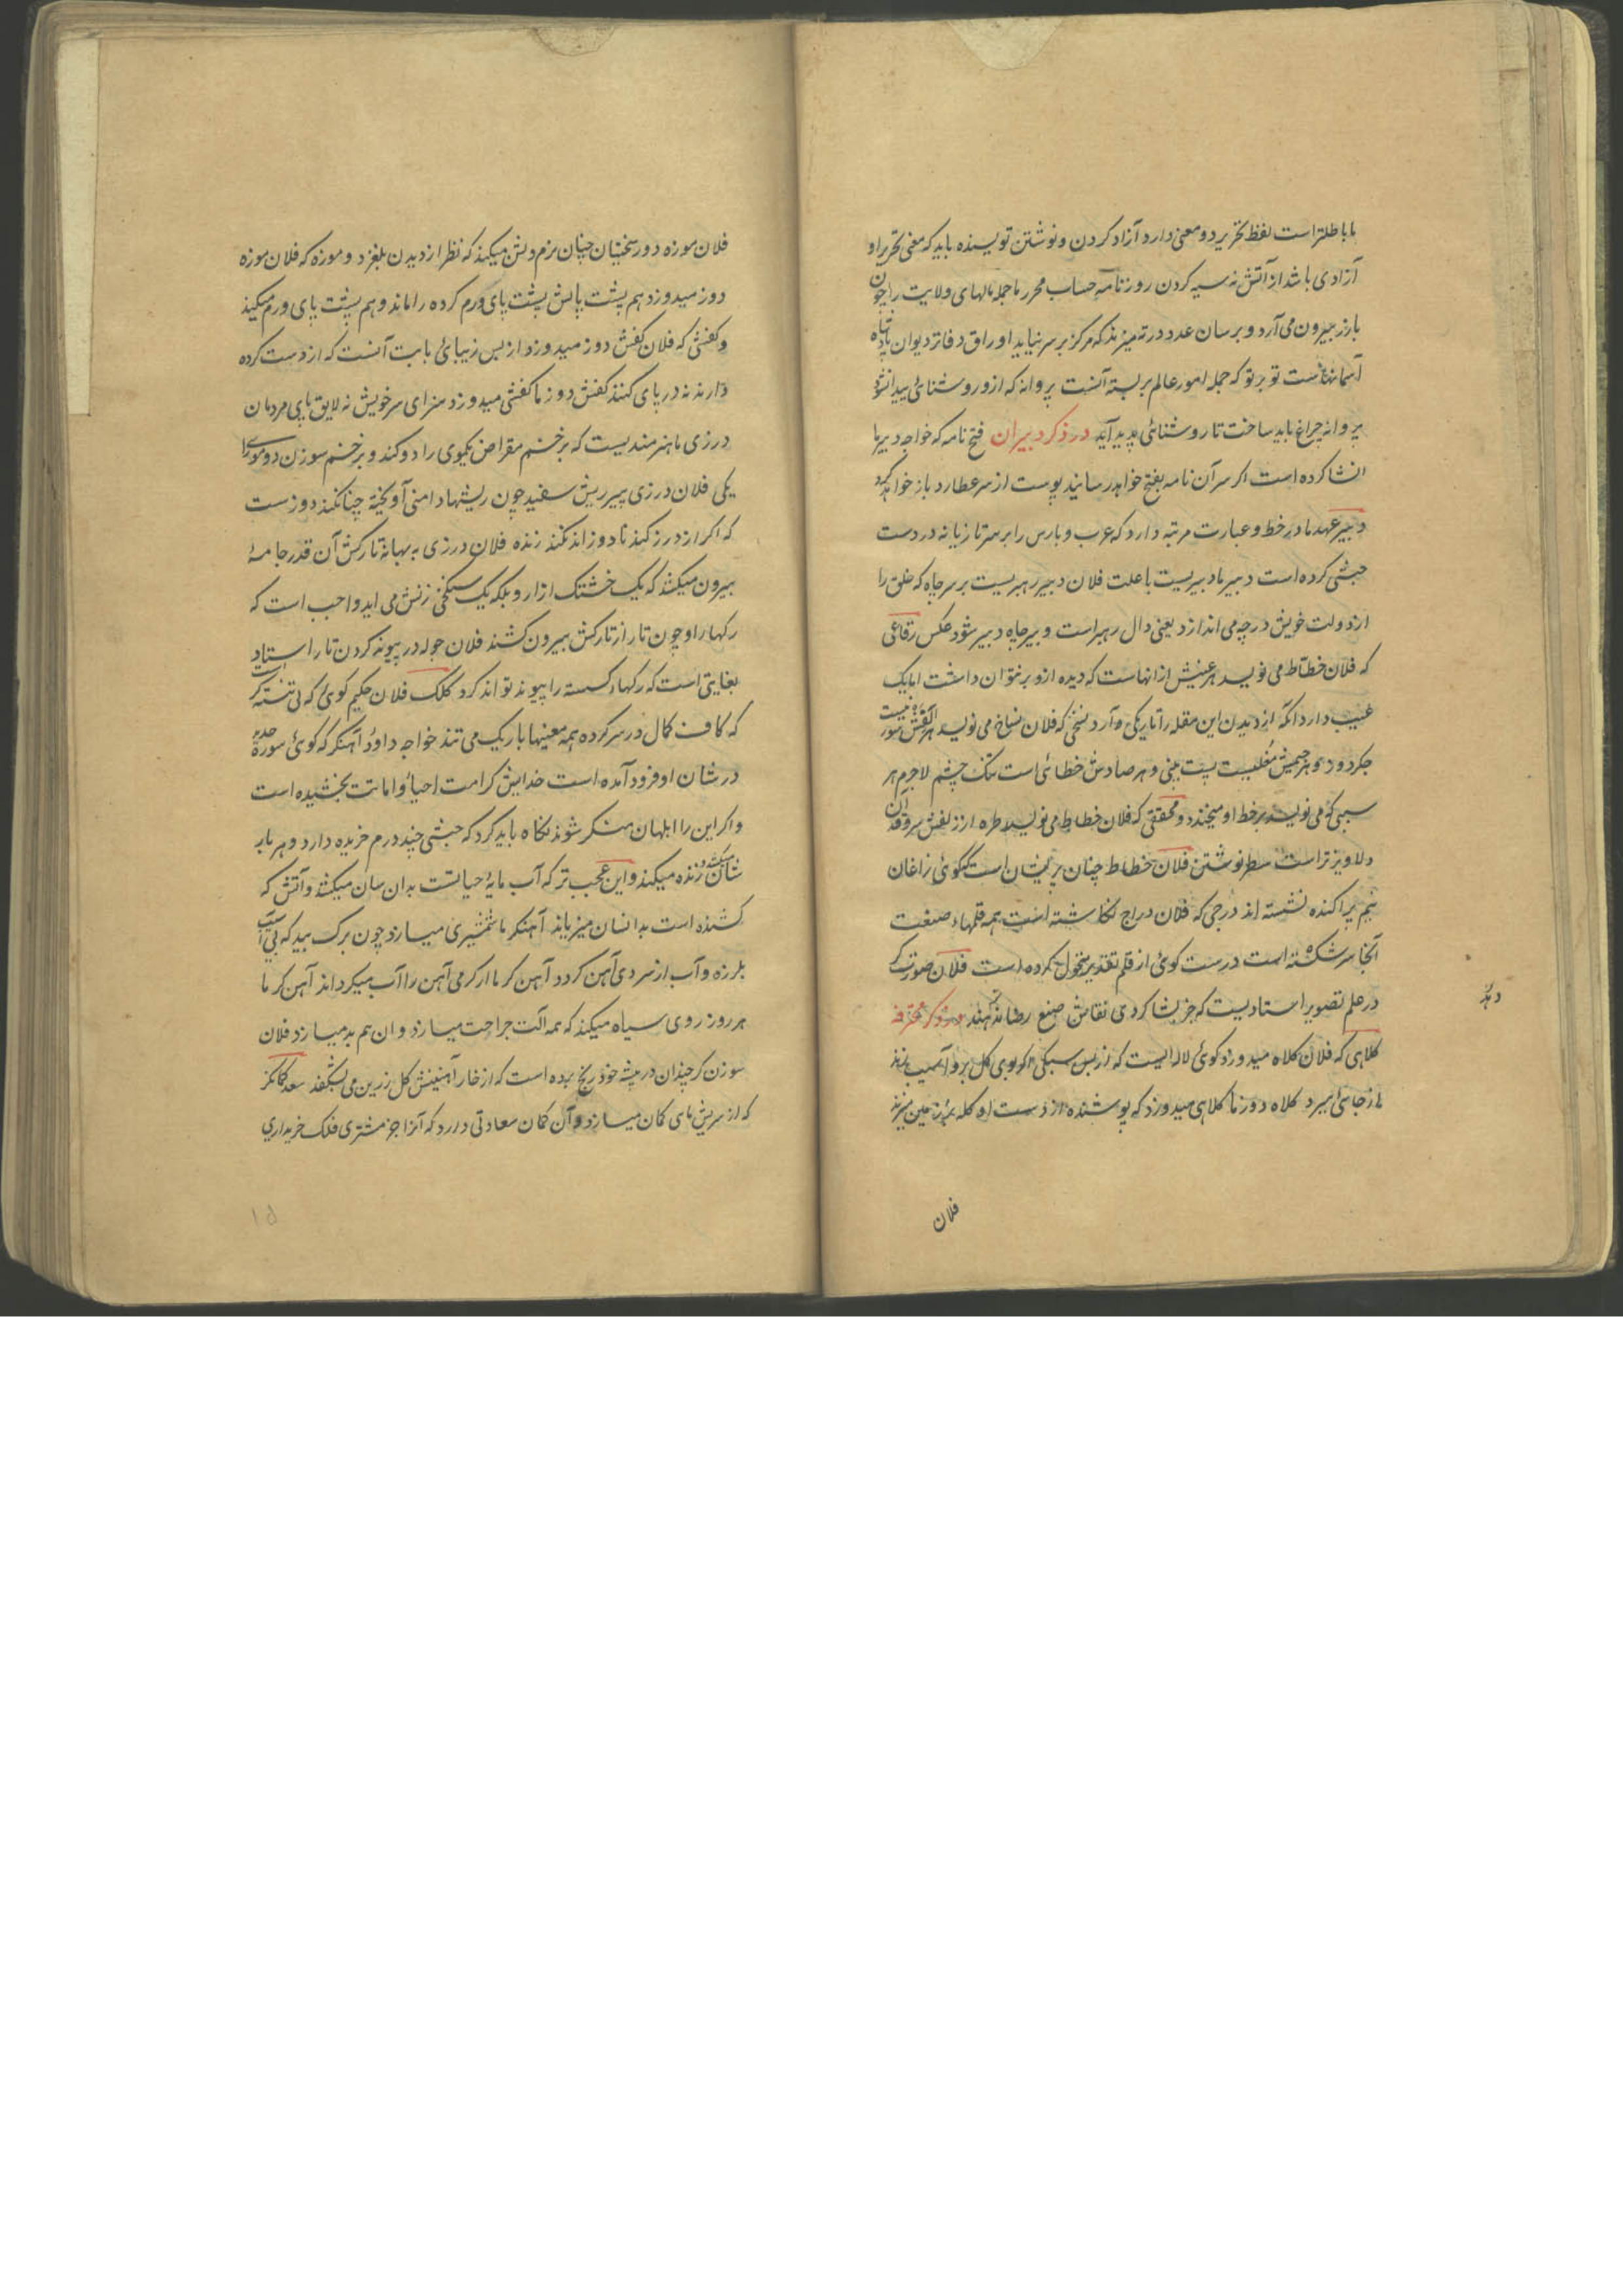 ما باطلتر است لفظ تحریر دو معنی دارد آزاد کردن و نوشتن نویسنده باید که معنی تحریر او
آزادی باشد از آتش نه سیه کردن روزنامه حساب محرر ما جمله مالهای ولایت را چون
بارز بیرون می آرد و برسان عدد در ته میزند که مرکز بر سر نیاید اوراق دفاتر دیوان پادشاه
آسمانهاست تو بر تو که جمله امور عالم بر بسته آنست پروانه که ازو روشنائی پیدا نشود
پروانه چراغ باید ساخت تا روشنائی پدید آید در ذکر دبیران فتح نامه که خواجه دبیر ما
انشا کرده است اگر سر آن نامه بفتح خواهد رسانید پوست از سر عطارد باز خواهد کرد
دبیر عهد ما در خط و عبارت مرتبه دارد که عرب و پارس را بر سر تازیانه در دست
حبشی کرده است دبیر ما دبیریست با علت فلان دبیر رهبریست بر سر چاه که خلق را
از دولت خویش در چه می اندازد یعنی دال رهبر است و بیر چاه دبیر شود عکس رقاعی
که فلان خطاط می نویسد هر عینیش از انهاست که دیده ازو بر نتوان داشت اما یک
عیب دارد آنکه از دیدن ابن مقله را تاریکی وآرد نسخی که فلان نساخ می نویسد هر الفش
جگردوز و هر جیمش مغلیست پست بینی و هر صادش خطائی است تنگ چشم لاجرم هر
سببی که می نویسد بر خط او میخندد و محققی که فلان خطاط می نویسد طره از زلفش سرو قدان
دلاویزتر است سطر نوشتن فلان خطاط چنان پریشان است که گوئی زاغان
بهم پراکنده نشسته اند درجی که فلان دراج نگاشته است همه قلمهاء صنعت
آنجا سر شکسته است درست گوئی از قلم تقدیر منحول کرده است فلان صورت گر
در علم تصویر استادیست که جز بشاگردی نقاش صنع رضا ندهند در ذکر محترفه
کلاهی که فلان کلاه میدوزد گوئی لاله ایست که از بس سبکی اگر بوی گل برو آسیب زند
از جای ببرد کلاه دوز ما کلاهی میدوزد که پوشنده از دست او کله بر زمین میزند
فلان
فلان موزه دوز سختیان چنان نرم و تنش میکند که نظر از دیدن بلغزد و موزه که فلان موزه
دوز میدوزد هم پشت پایش پشت پای ورم کرده را ماند و هم پشت پای ورم میکند
و کفشی که فلان کفش دوز میدوزد از بس زیبائی بابت آنست که از دست کرده
دارند نه در پای کنند کفش دوز ما کفشی میدوزد سزای سر خویش نه لایق پای مردمان
درزی ما هنرمندیست که بر خشم مقراض یکموی را دو کند و بر خشم سوزن دو موی را
یکی فلان درزی پیر ریش سفید چون ریشها دامنی آویخته چنانکند دوزست
که اگر از درز کند نا دوز اند نکند زنده فلان درزی به بهانه تارکش آن قدر جامه
بیرون میکشد که یک خشتک ازار و بلکه یک سکنجی زنش می اید واجب است که
رگها را و چون تار از تارکش بیرون کشند فلان جوله در پیونه کردن تار استاد
بغایتی است که رگهاء گسسته را پیوند تواند کرد کلک فلان حکیم گوی که نی تنسته گر است
که کاف کمال در سر کرده همه معنیها باریک می تند خواجه داود آهنگر که گوئی سوره حدید
در شان او فرود آمده است خدایش کرامت احیا و اماتت بخشیده است
و اگر این را ابلهان منکر شوند نگاه باید کرد که حبشی چند درم خریده دارد و هر بار
شان کشته زنده میکند و این عجب تر که آب مایه حیاتست بدان سان میکشد و آتش که
کشنده است بدانسان میزیاند آهنگر ما شمشیری میسازد چون برگ بید که بی آسیب
بلرزد و آب از سردی آهن گردد آهن گر ما از گرمی آهن را آب میگرداند آهن گر ما
هر روز روی سیاه میکند که همه آلت جراحت میسازد و ان هم بد میسازد فلان
سوزن گر چندان در پیشه خود رنج برده است که از خار آهنینش گل زرین می شکفد سعد کمانگر
که از سریش مای کمان میسازد و آن کمان سعادتی دارد که آنرا جز مشتری فلک خریداری
۱۵